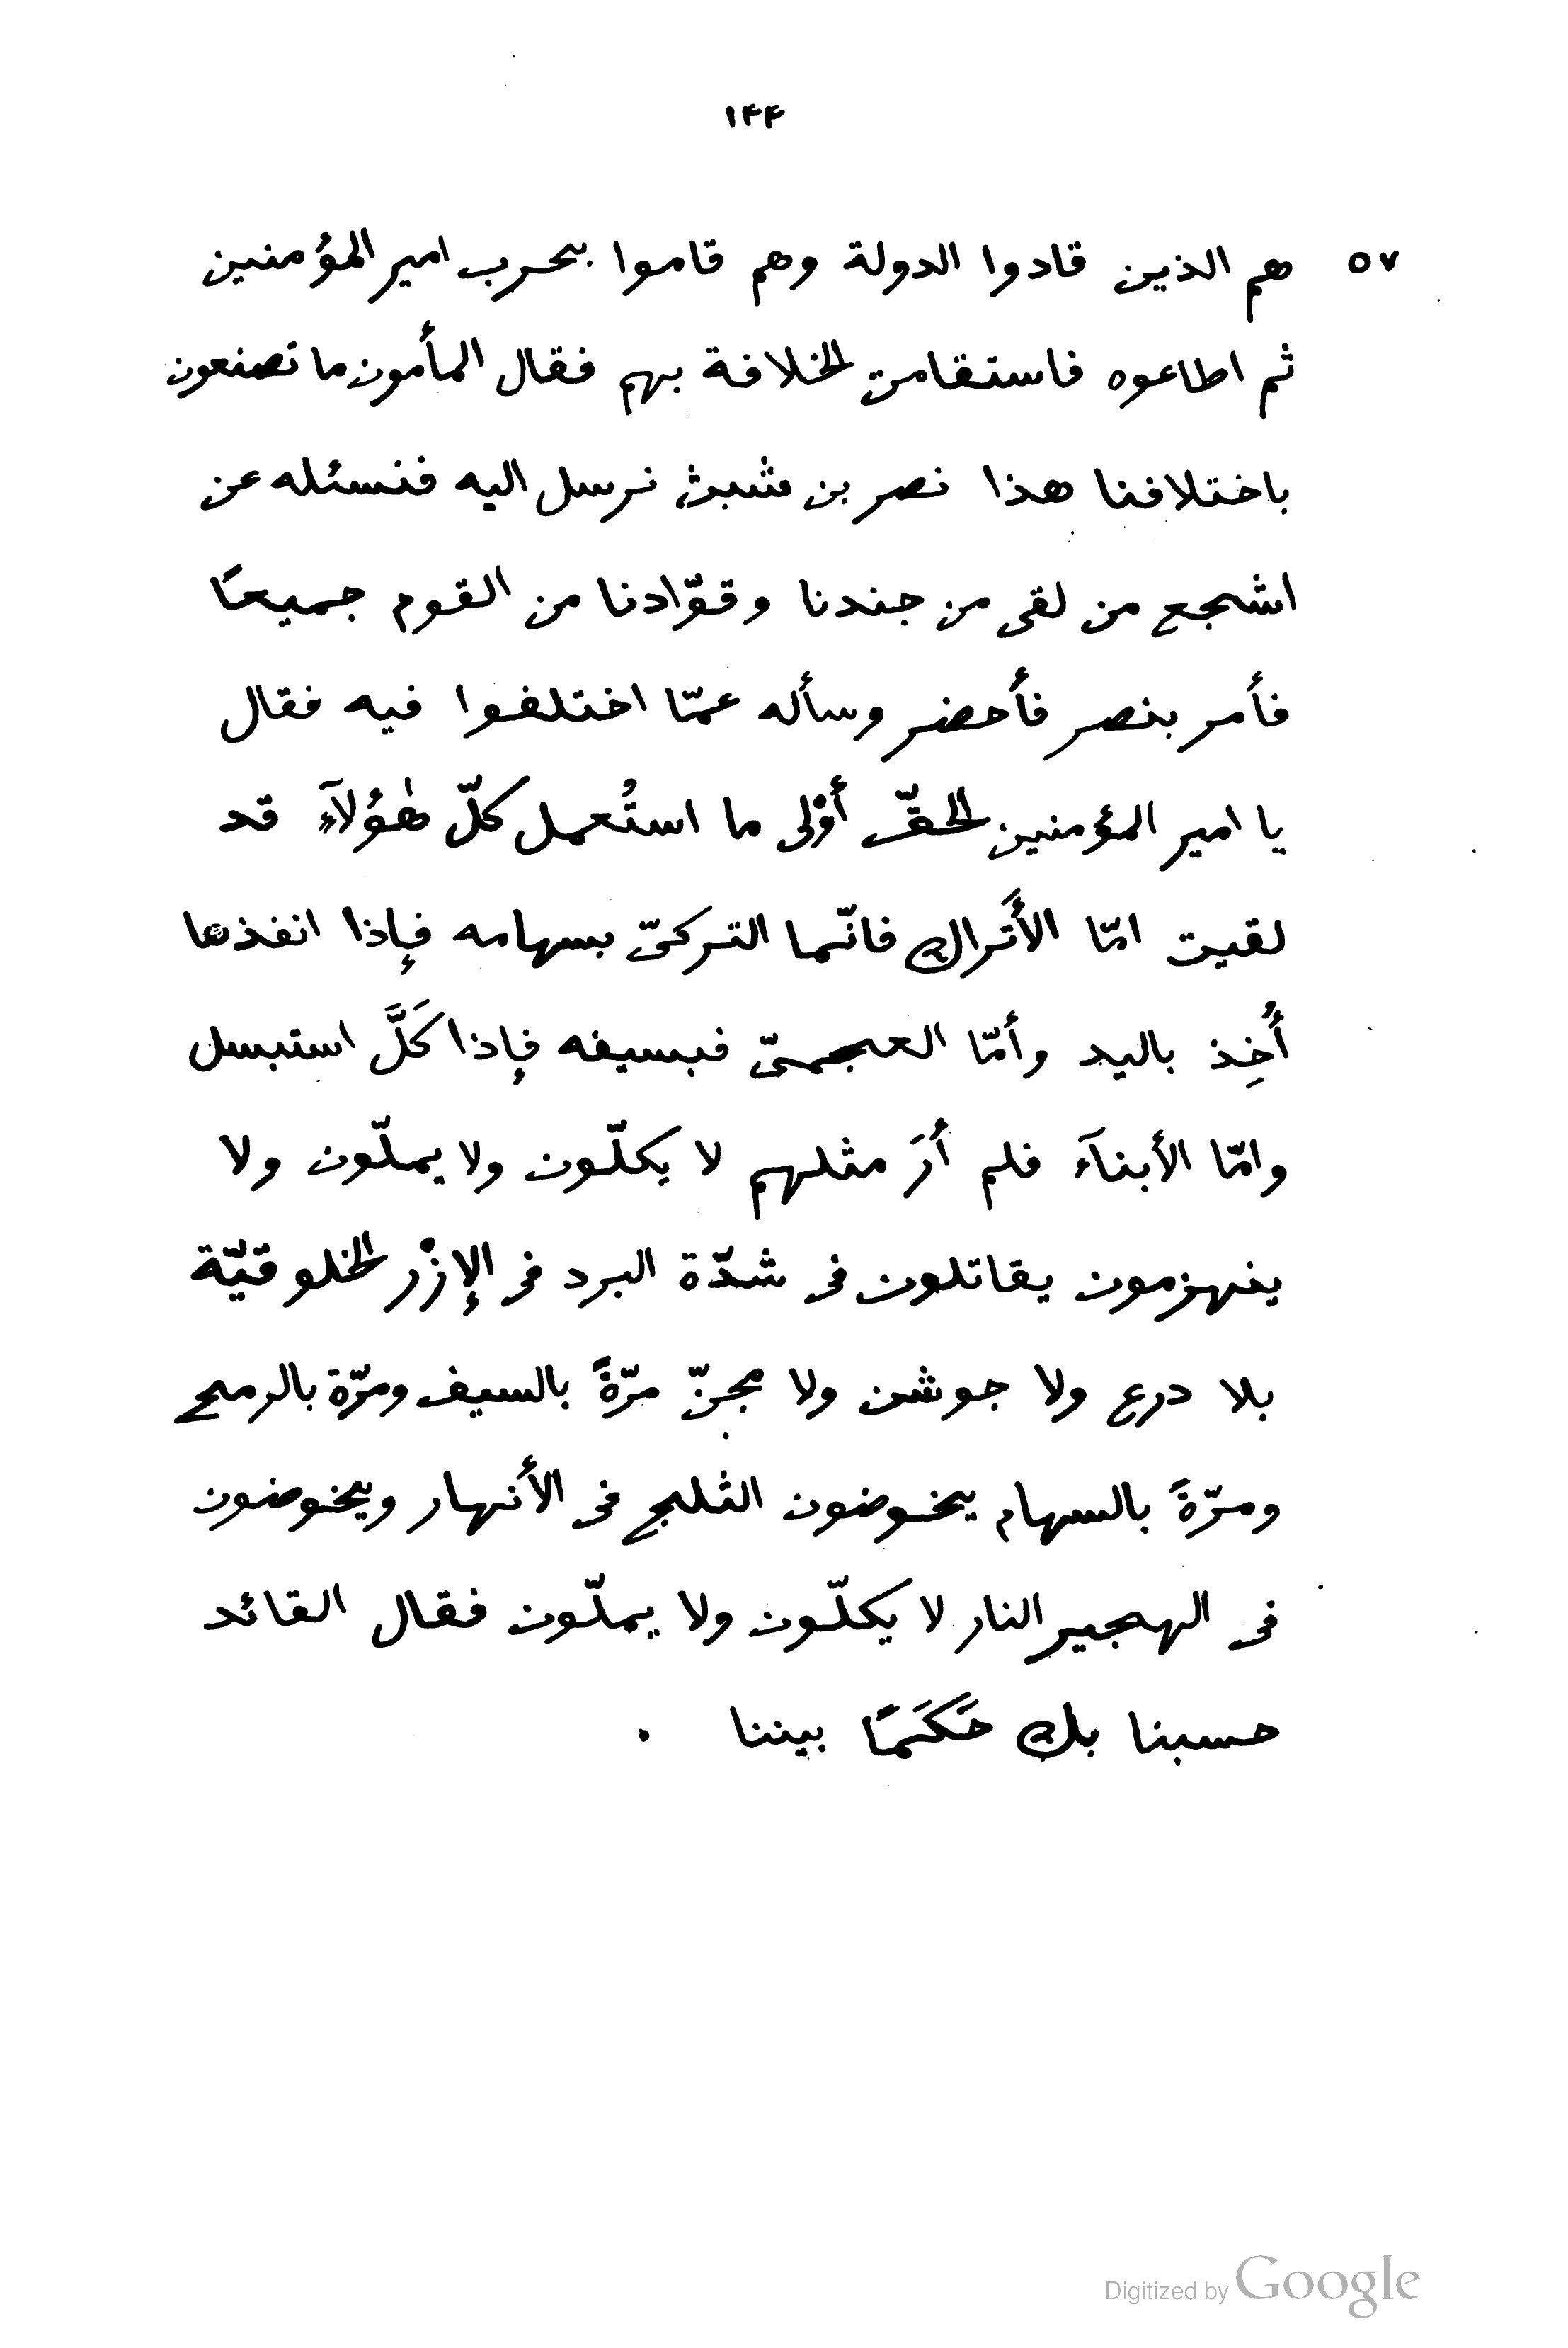 ١٤٤
٥٧ هم الذين قادوا الدولة وهم قاموا بحرب امير المؤمنين
ثم اطاعوه فاستقامت الخلافة بهم فقال المأمون ما تصنعون
باختلافنا هذا نصر بن شبث نرسل اليه فنسئله عن
اشجع من لقى من جندنا وقوّادنا من القوم جميعًا
فأمر بنصر فأحضر وسأله عمّا اختلفوا فيه فقال
يا امير المؤمنين الحقّ أَوْلى ما استُعمل كلّ هٰؤلآء قد
لقيت امّا الأَتراك فانّما التركىّ بسهامه فإذا انفذها
أُخِذ باليد وأمّا العجمىّ فبسيفه فإذا كَلَّ استبسل
وامّا الأبنآء فلم أرَ مثلهم لا يكلّون ولا يملّون ولا
ينهزمون يقاتلون فى شدّة البرد فى الإزْر الخلوقيّة
بلا درع ولا جوشن ولا مجنّ مرّةً بالسيف ومرّة بالرمح
ومرّةً بالسهام يخوضون الثلج فى الأنهار ويخوضون
فى الهجير النار لا يكلّون ولا يملّون فقال القائد
حسبنا بك حَكَمًا بيننا .
Digitized by Google